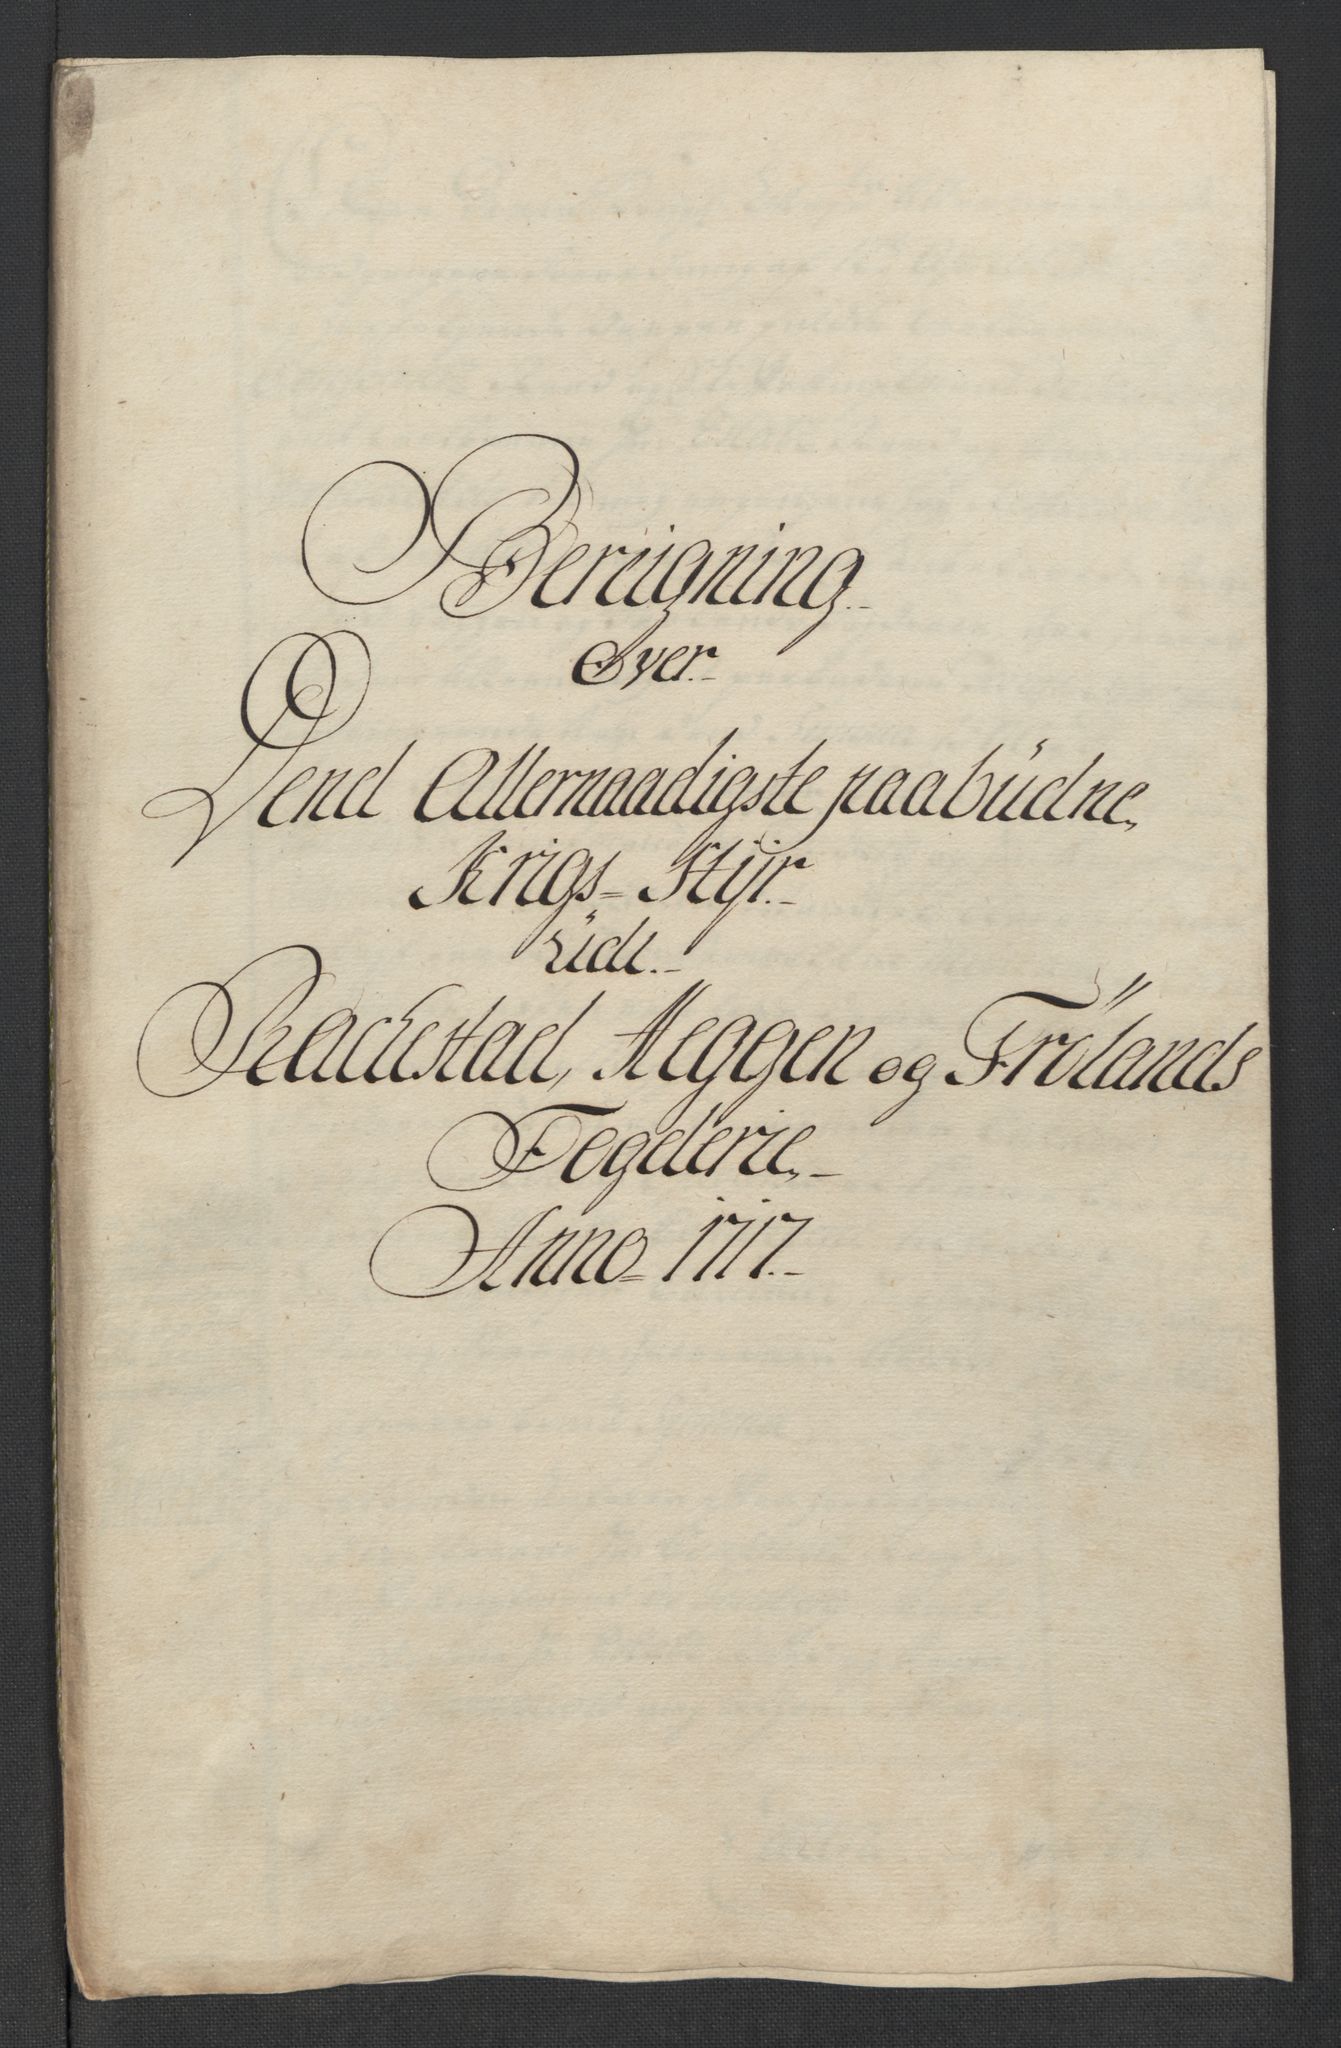 Bereigning
Over
Dend Allernaadigste paabüdne
Krigs-Styr
üdi
Rackestad, Heggen og Frölands
Fogderie
Anno 1717